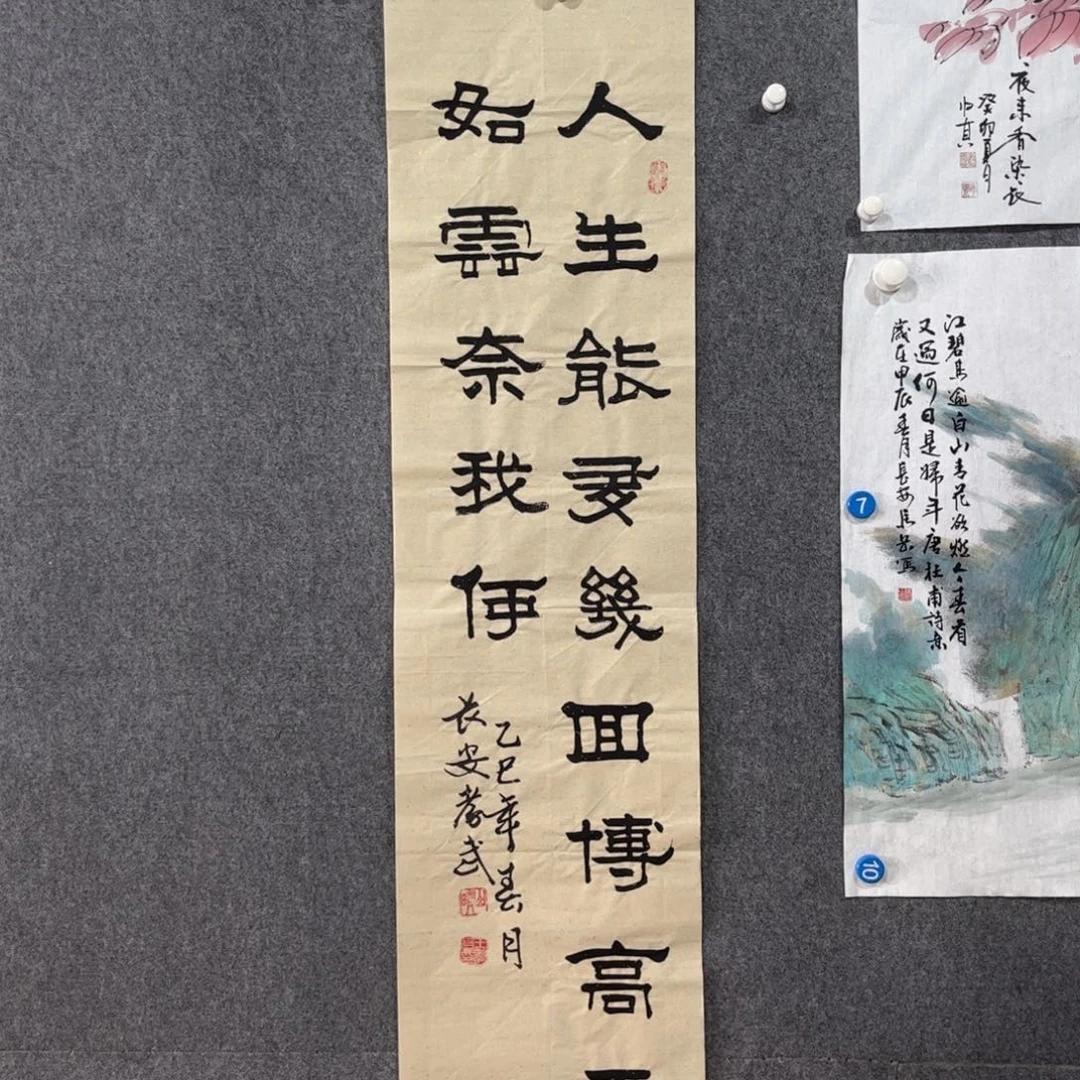 人生能有幾回博高
如雲奈我何
乙巳年春月
长安孝武
夜来香染衣
癸卯夏月
归真
江碧鳥逾白山青花欲燃今春看
又過何日是歸年唐杜甫詩意
歲在甲辰春月長安
7
10